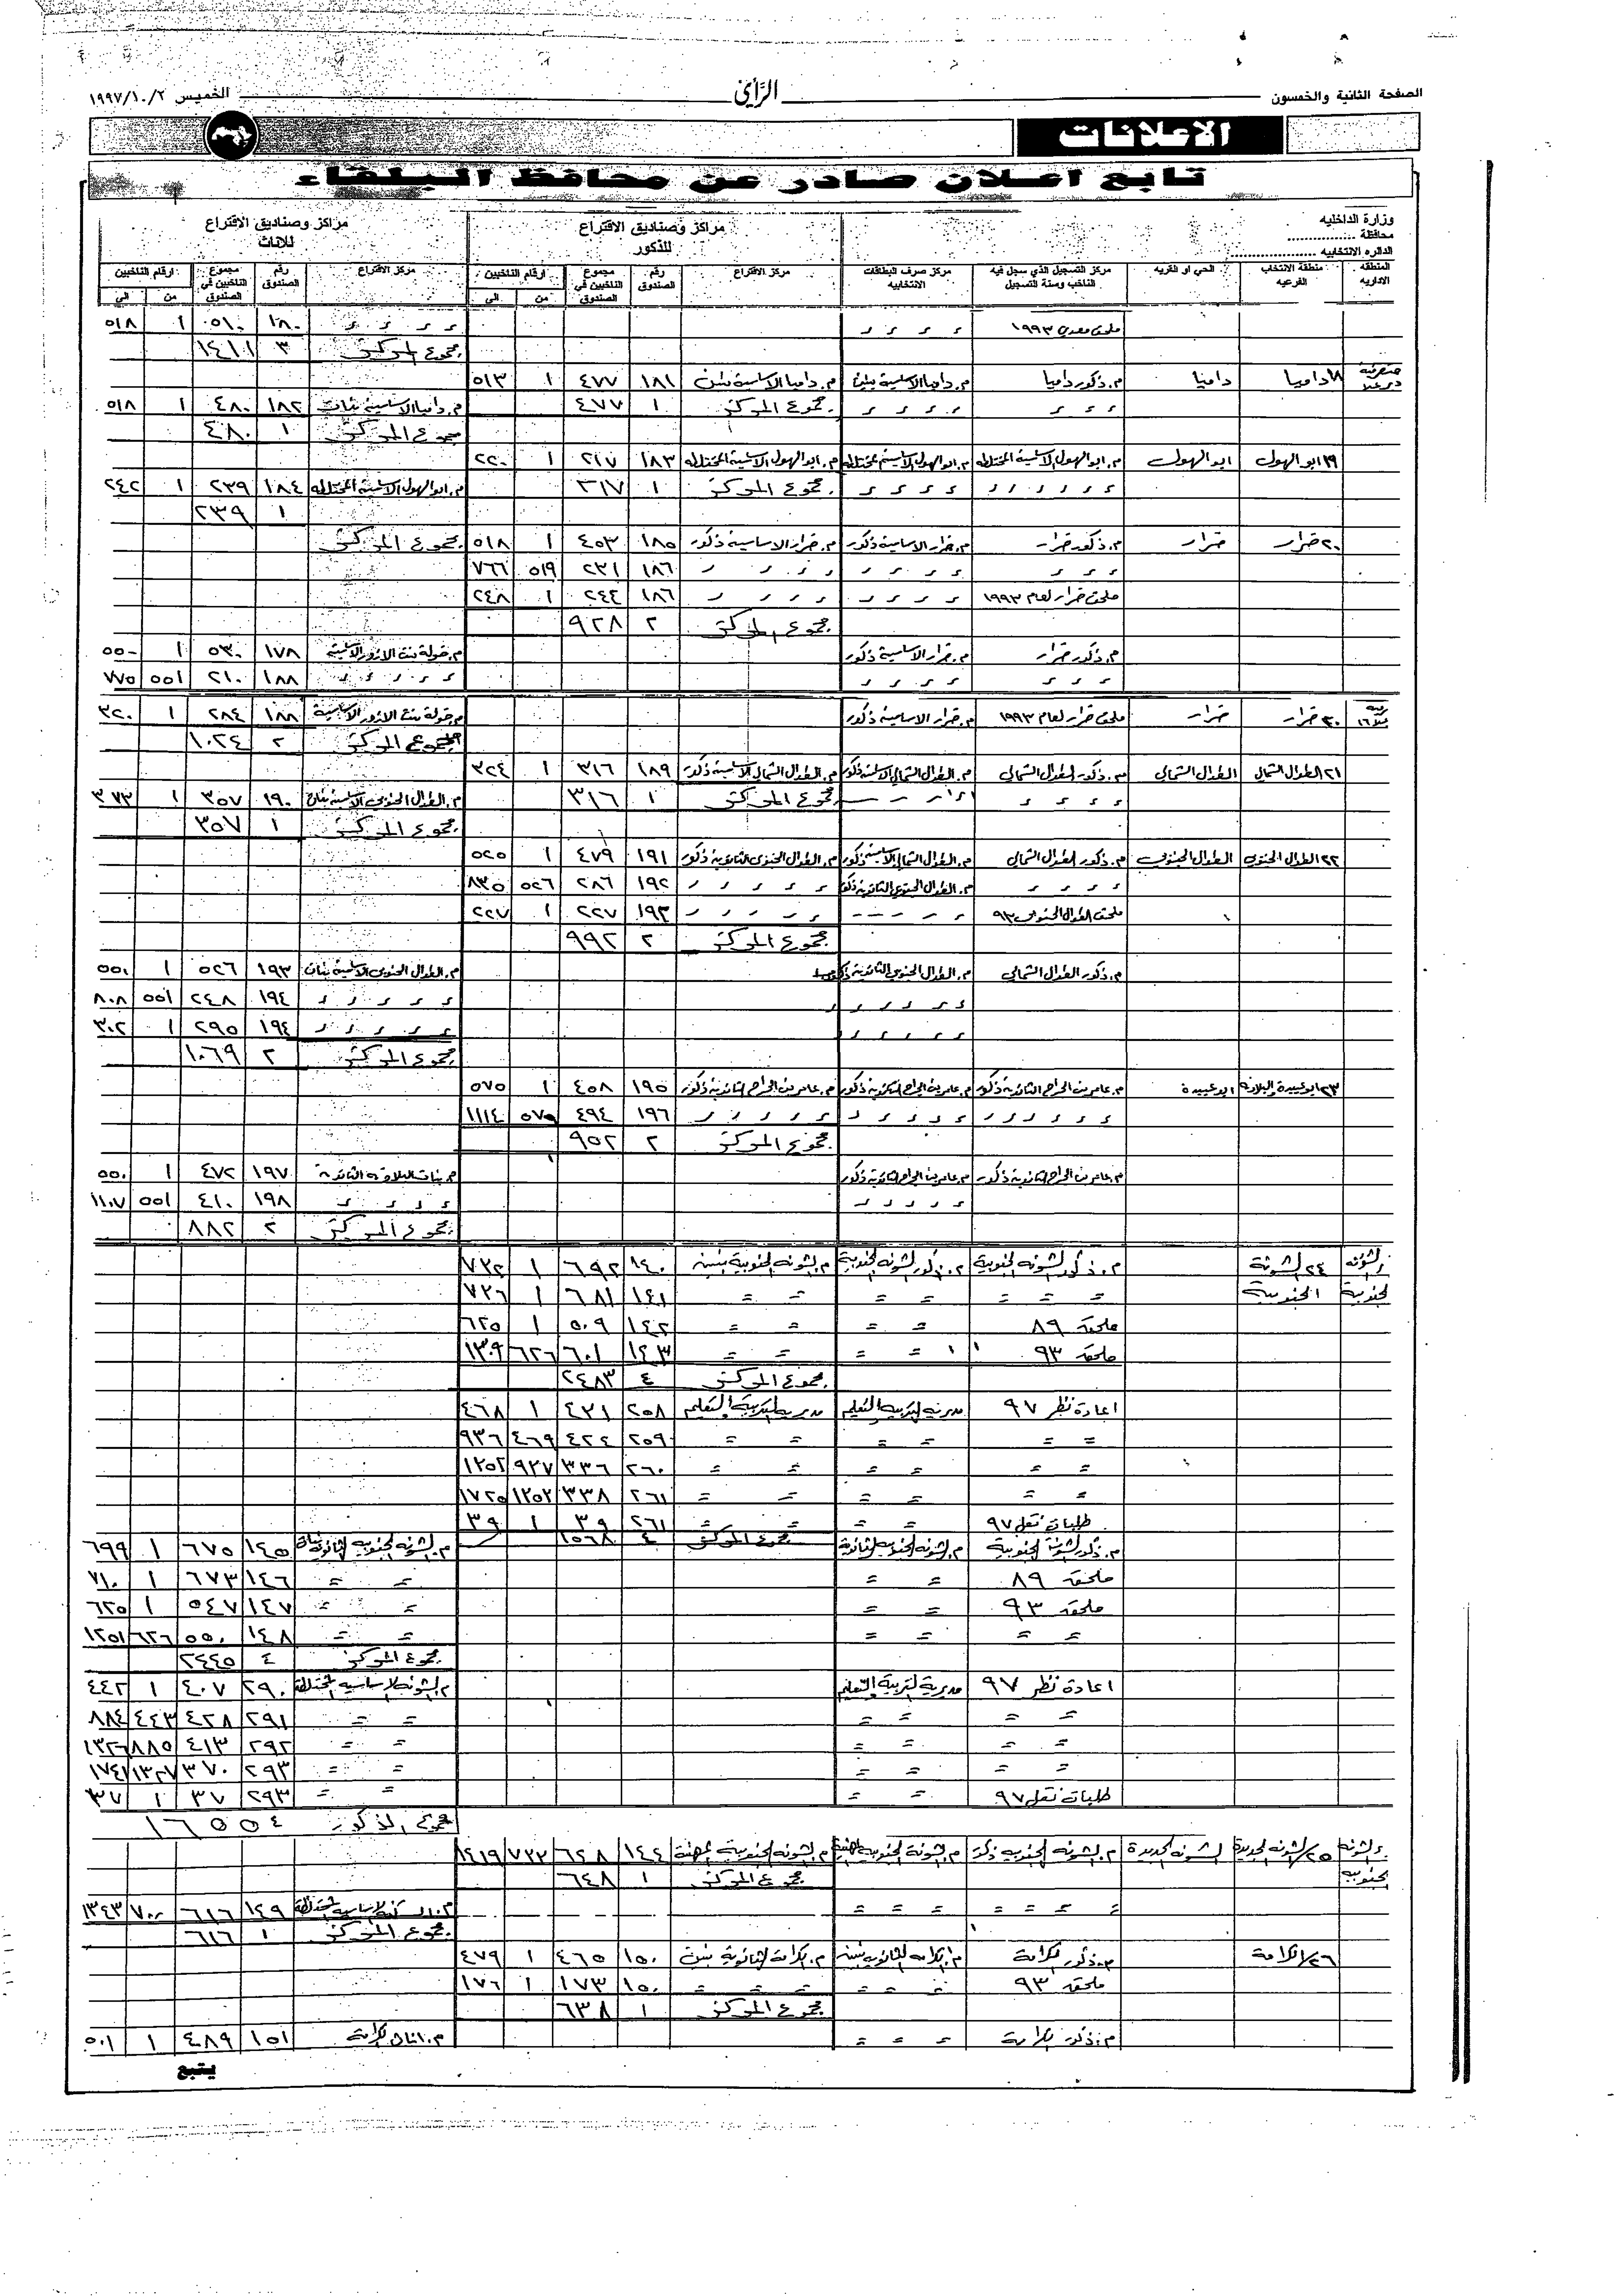 الصفحة الثانية والخمسون
الرأي
الخميس ١٩٩٧/١٠/٢
الاعلانات
تابع اعلان صادر عن محافظ البلقاء
وزارة الداخليه
محافظة ..............
الدائره الانتخابيه ....................
مراكز وصناديق الاقتراع للذكور
مراكز وصناديق الاقتراع للاناث
المنطقه الاداريه منطقة الانتخاب الفرعيه الحي او القريه مركز التسجيل الذي سجل فيه الناخب وسنة التسجيل مركز صرف البطاقات الانتخابيه مركز الاقتراع رقم الصندوق مجموع الناخبين في الصندوق ارقام الناخبين من الى مركز الاقتراع رقم الصندوق مجموع الناخبين في الصندوق ارقام الناخبين من الى
ملحق معدي ١٩٩٣ ١٨٠ ٥١٠ ١ ٥١٨
مجموع المركز ٣ ١٤١١
١٨ داميا داميا م. ذكور داميا م. داميا الاساسية بنين م. داميا الاساسية بنين ١٨١ ٤٧٧ ١ ٥١٣
مجموع المركز ١ ٤٧٧ م. داميا الاساسية بنات ١٨٢ ٤٨٠ ١ ٥١٨
مجموع المركز ١ ٤٨٠
١٩ ابو الهول ابو الهول م. ابو الهول الاساسية المختلطه م. ابو الهول الاساسية المختلطه م. ابو الهول الاساسية المختلطه ١٨٣ ٢١٧ ١ ٢٢٠
مجموع المركز ١ ٢١٧ م. ابو الهول الاساسية المختلطه ١٨٤ ٢٣٩ ١ ٢٤٢
١ ٢٣٩
٢٠ ضرار ضرار م. ذكور ضرار م. ضرار الاساسية ذكور م. ضرار الاساسية ذكور ١٨٥ ٤٥٣ ١ ٥١٨ مجموع المركز
١٨٦ ٢٣١ ٥١٩ ٧٦٦
ملحق ضرار لعام ١٩٩٣ ١٨٦ ٢٤٤ ١ ٢٤٨
مجموع المركز ٢ ٩٢٨
م. ذكور ضرار م. ضرار الاساسية ذكور م. خولة بنت الازور الاساسية ١٧٨ ٥٣٠ ١ ٥٥٠
١٨٨ ٢١٠ ٥٥١ ٧٧٥
٣٠ ضرار ضرار ملحق ضرار لعام ١٩٩٣ م. ضرار الاساسية ذكور م. خولة بنت الازور الاساسية ١٨٨ ٢٨٤ ١ ٣٢٠
مجموع المركز ٢ ١٠٢٤
٢١ الطوال الشمالي الطوال الشمالي م. ذكور الطوال الشمالي م. الطوال الشمالي الاساسية ذكور م. الطوال الشمالي الاساسية ذكور ١٨٩ ٣١٦ ١ ٣٢٤
مجموع المركز ١ ٣١٦ م. الطوال الجنوبي الاساسية بنات ١٩٠ ٣٥٧ ١ ٣٧٣
مجموع المركز ١ ٣٥٧
٢٢ الطوال الجنوبي الطوال الجنوبي م. ذكور الطوال الشمالي م. الطوال الشمالي الاساسية ذكور م. الطوال الجنوبي الثانوية ذكور ١٩١ ٤٧٩ ١ ٥٢٥
م. الطوال الجنوبي الثانوية ذكور ١٩٢ ٢٨٦ ٥٢٦ ٨٣٥
ملحق الطوال الجنوبي ٩٣ ١٩٢ ٢٢٧ ١ ٢٢٧
مجموع المركز ٢ ٩٩٢
م. ذكور الطوال الشمالي م. الطوال الجنوبي الثانوية ذكور م. الطوال الجنوبي الاساسية بنات ١٩٣ ٥٢٦ ١ ٥٥٠
١٩٤ ٢٤٨ ٥٥١ ٨٠٨
١٩٤ ٢٩٥ ١ ٣٠٢
مجموع المركز ٢ ١٠٦٩
٢٣ ابو عبيدة والبلاونة ابو عبيدة م. عامر بن الجراح الثانوية ذكور م. عامر بن الجراح الثانوية ذكور م. عامر بن الجراح الثانوية ذكور ١٩٥ ٤٥٨ ١ ٥٧٥
١٩٦ ٤٩٤ ٥٧٥ ١١١٤
مجموع المركز ٢ ٩٥٢
م. عامر بن الجراح الثانوية ذكور م. عامر بن الجراح الثانوية ذكور م. بنات البلاونة الثانوية ١٩٧ ٤٧٢ ١ ٥٥٠
١٩٨ ٤١٠ ٥٥١ ١١٠٧
مجموع المركز ٢ ٨٨٢
الشونه الجنوبية ٢٤ الشونة الجنوبية م. ذكور الشونه الجنوبية م. ذكور الشونه الجنوبية م. الشونه الجنوبية بنين ١٤٠ ٦٩٢ ١ ٧٣٢
= = = = = = ١٤١ ٦٨١ ١ ٧٢٦
ملحقه ٨٩ = = = = ١٤٢ ٥٠٩ ١ ٦٢٥
ملحقه ٩٣ = = = = ١٤٣ ٦٠١ ٦٢٦ ١٣٠٩
مجموع المركز ٤ ٢٤٨٣
اعادة نظر ٩٧ مديرية التربية والتعليم مديرية التربية والتعليم ٢٥٨ ٤٣١ ١ ٤٦٨
= = = = = = ٢٥٩ ٤٢٤ ٤٦٩ ٩٣٦
= = = = = = ٢٦٠ ٣٣٦ ٩٢٧ ١٢٥٢
= = = = = = ٢٦١ ٣٣٨ ١٢٥٢ ١٧٢٥
طلبات نقل ٩٧ = = = = ٢٦١ ٣٩ ١ ٣٩
مجموع المركز ٤ ١٥٦٨
م. ذكور الشونة الجنوبية م. الشونه الجنوبيه الثانوية م. الشونه الجنوبيه الثانويه بنات ١٤٥ ٦٧٥ ١ ٦٩٩
ملحقه ٨٩ = = = = ١٤٦ ٦٧٣ ١ ٧١٠
ملحقه ٩٣ = = = = ١٤٧ ٥٤٧ ١ ٦٢٥
= = = = = = ١٤٨ ٥٥٠ ٦٢٦ ١٢٥١
مجموع المركز ٤ ٢٤٤٥
اعادة نظر ٩٧ مديرية التربية والتعليم م. الشونه الاساسيه المختلطة ٢٩٠ ٤٠٧ ١ ٤٤٢
= = = = = = ٢٩١ ٤٢٨ ٤٤٣ ٨٨٤
= = = = = = ٢٩٢ ٤١٣ ٨٨٥ ١٣٢٦
= = = = = = ٢٩٣ ٣٧٠ ١٣٢٧ ١٧٤١
طلبات نقل ٩٧ = = = = ٢٩٣ ٣٧ ١ ٣٧
مجموع الذكور ١٦٥٥٤
الشونه الجنوبيه ٢٥ الشونه الجديدة الشونه الجديدة م. الشونه الجنوبيه ذكور م. الشونة الجنوبية المهنية م. الشونه الجنوبية المهنية ١٤٤ ٦٤٨ ٧٣٣ ١٤١٩
مجموع المركز ١ ٦٤٨
= = = = = = = ١٤٩ ٦١٦ ٧٠٠ ١٣٤٣
مجموع المركز ١ ٦١٦
٢٦ الكرامة م. ذكور الكرامة م. الكرامه الثانويه بنين م. الكرامة الثانوية بنين ١٥٠ ٤٦٥ ١ ٤٧٩
ملحقه ٩٣ = = = = ١٥٠ ١٧٣ ١ ١٧٦
مجموع المركز ١ ٦٣٨
م. ذكور الكرامة = = = م. اناث الكرامة ١٥١ ٤٨٩ ١ ٥٠١
يتبع